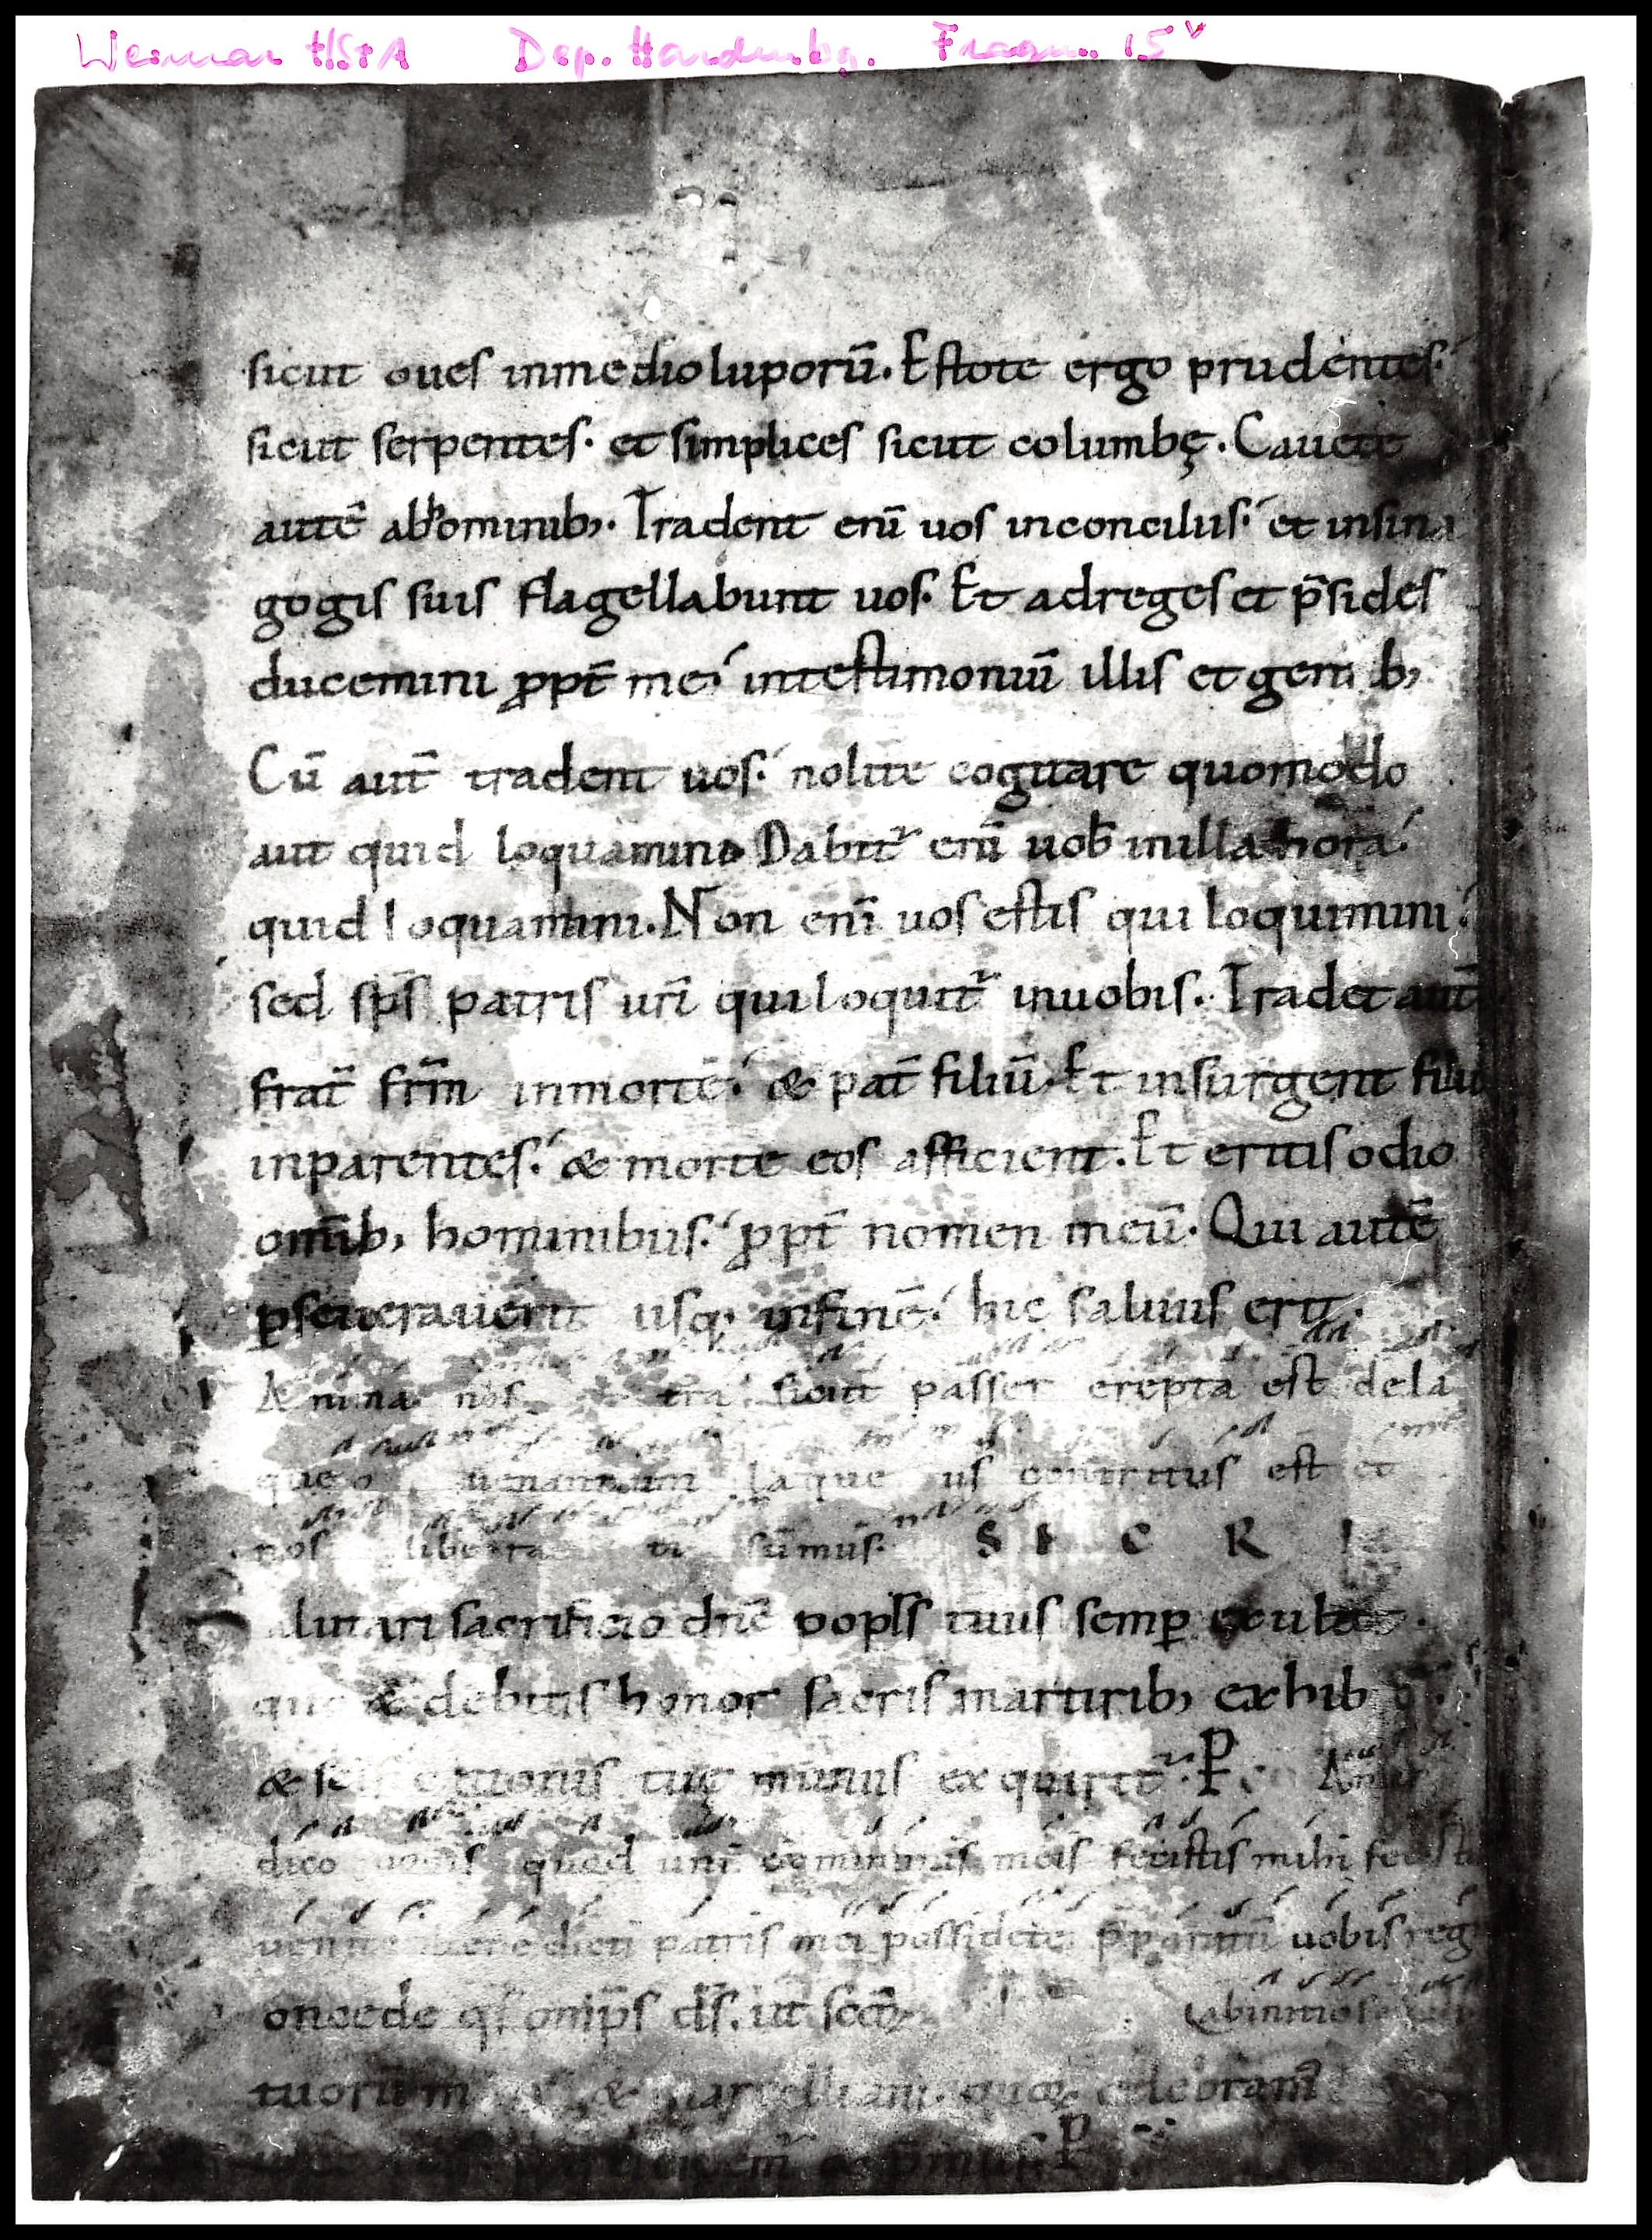 Weimar HStA Dep. Hardenbg. Fragm. 15v
sicut oues inmedioluporū. Estote ergo prudentes.
sicut serpentes. et simplices sicut columbę. Cauete
autē abhominib; Tradent enī uos inconciliis. et insina
gogis suis flagellabunt uos. Et adreges et p̄sides
ducemini ꝓpt̄ me. intestimoniū illis et gen b;
Cū aut̄ tradent uos. nolite cogitare quomodo
aut quid loquamini. Dabit᷑ enī uob̄ inilla hora.
quid loquamini. Non enī uos estis qui loquimini.
sed sp̄s patris ur̄i qui loquit᷑ inuobis. Tradet aut̄
frat̄ fr̄m inmortē. & pat̄ filiū. Et insurgent filii
inparentes. & morte eos afficient. Et eritis odio
om̄ib; hominibus. ꝓpt̄ nomen meū. Qui autē
ꝑseuerauerit usq; infinē. hic saluus erit.
Anima nos tra sicut passer erepta est dela
queo uenantium laque us contritus est et
nos libera ti sumus. S E C R
alutari sacrificio dn̄e popl̄s tuus semꝑ exultet.
quo & debitus honor sacris martirib; exhib
& sc̄ tionis tuę munus exquirit᷑. P Amen
dico uobis quod uni exminimis meis fecistis mihi fecisti
uenite benedicti patris mei possidete p̄paratū uobis reg
oncede qs̄ omp̄s ds̄. ut scōꝝ Qabinitio se
tuorum & marcelliani. quoꝝ celebram᷑